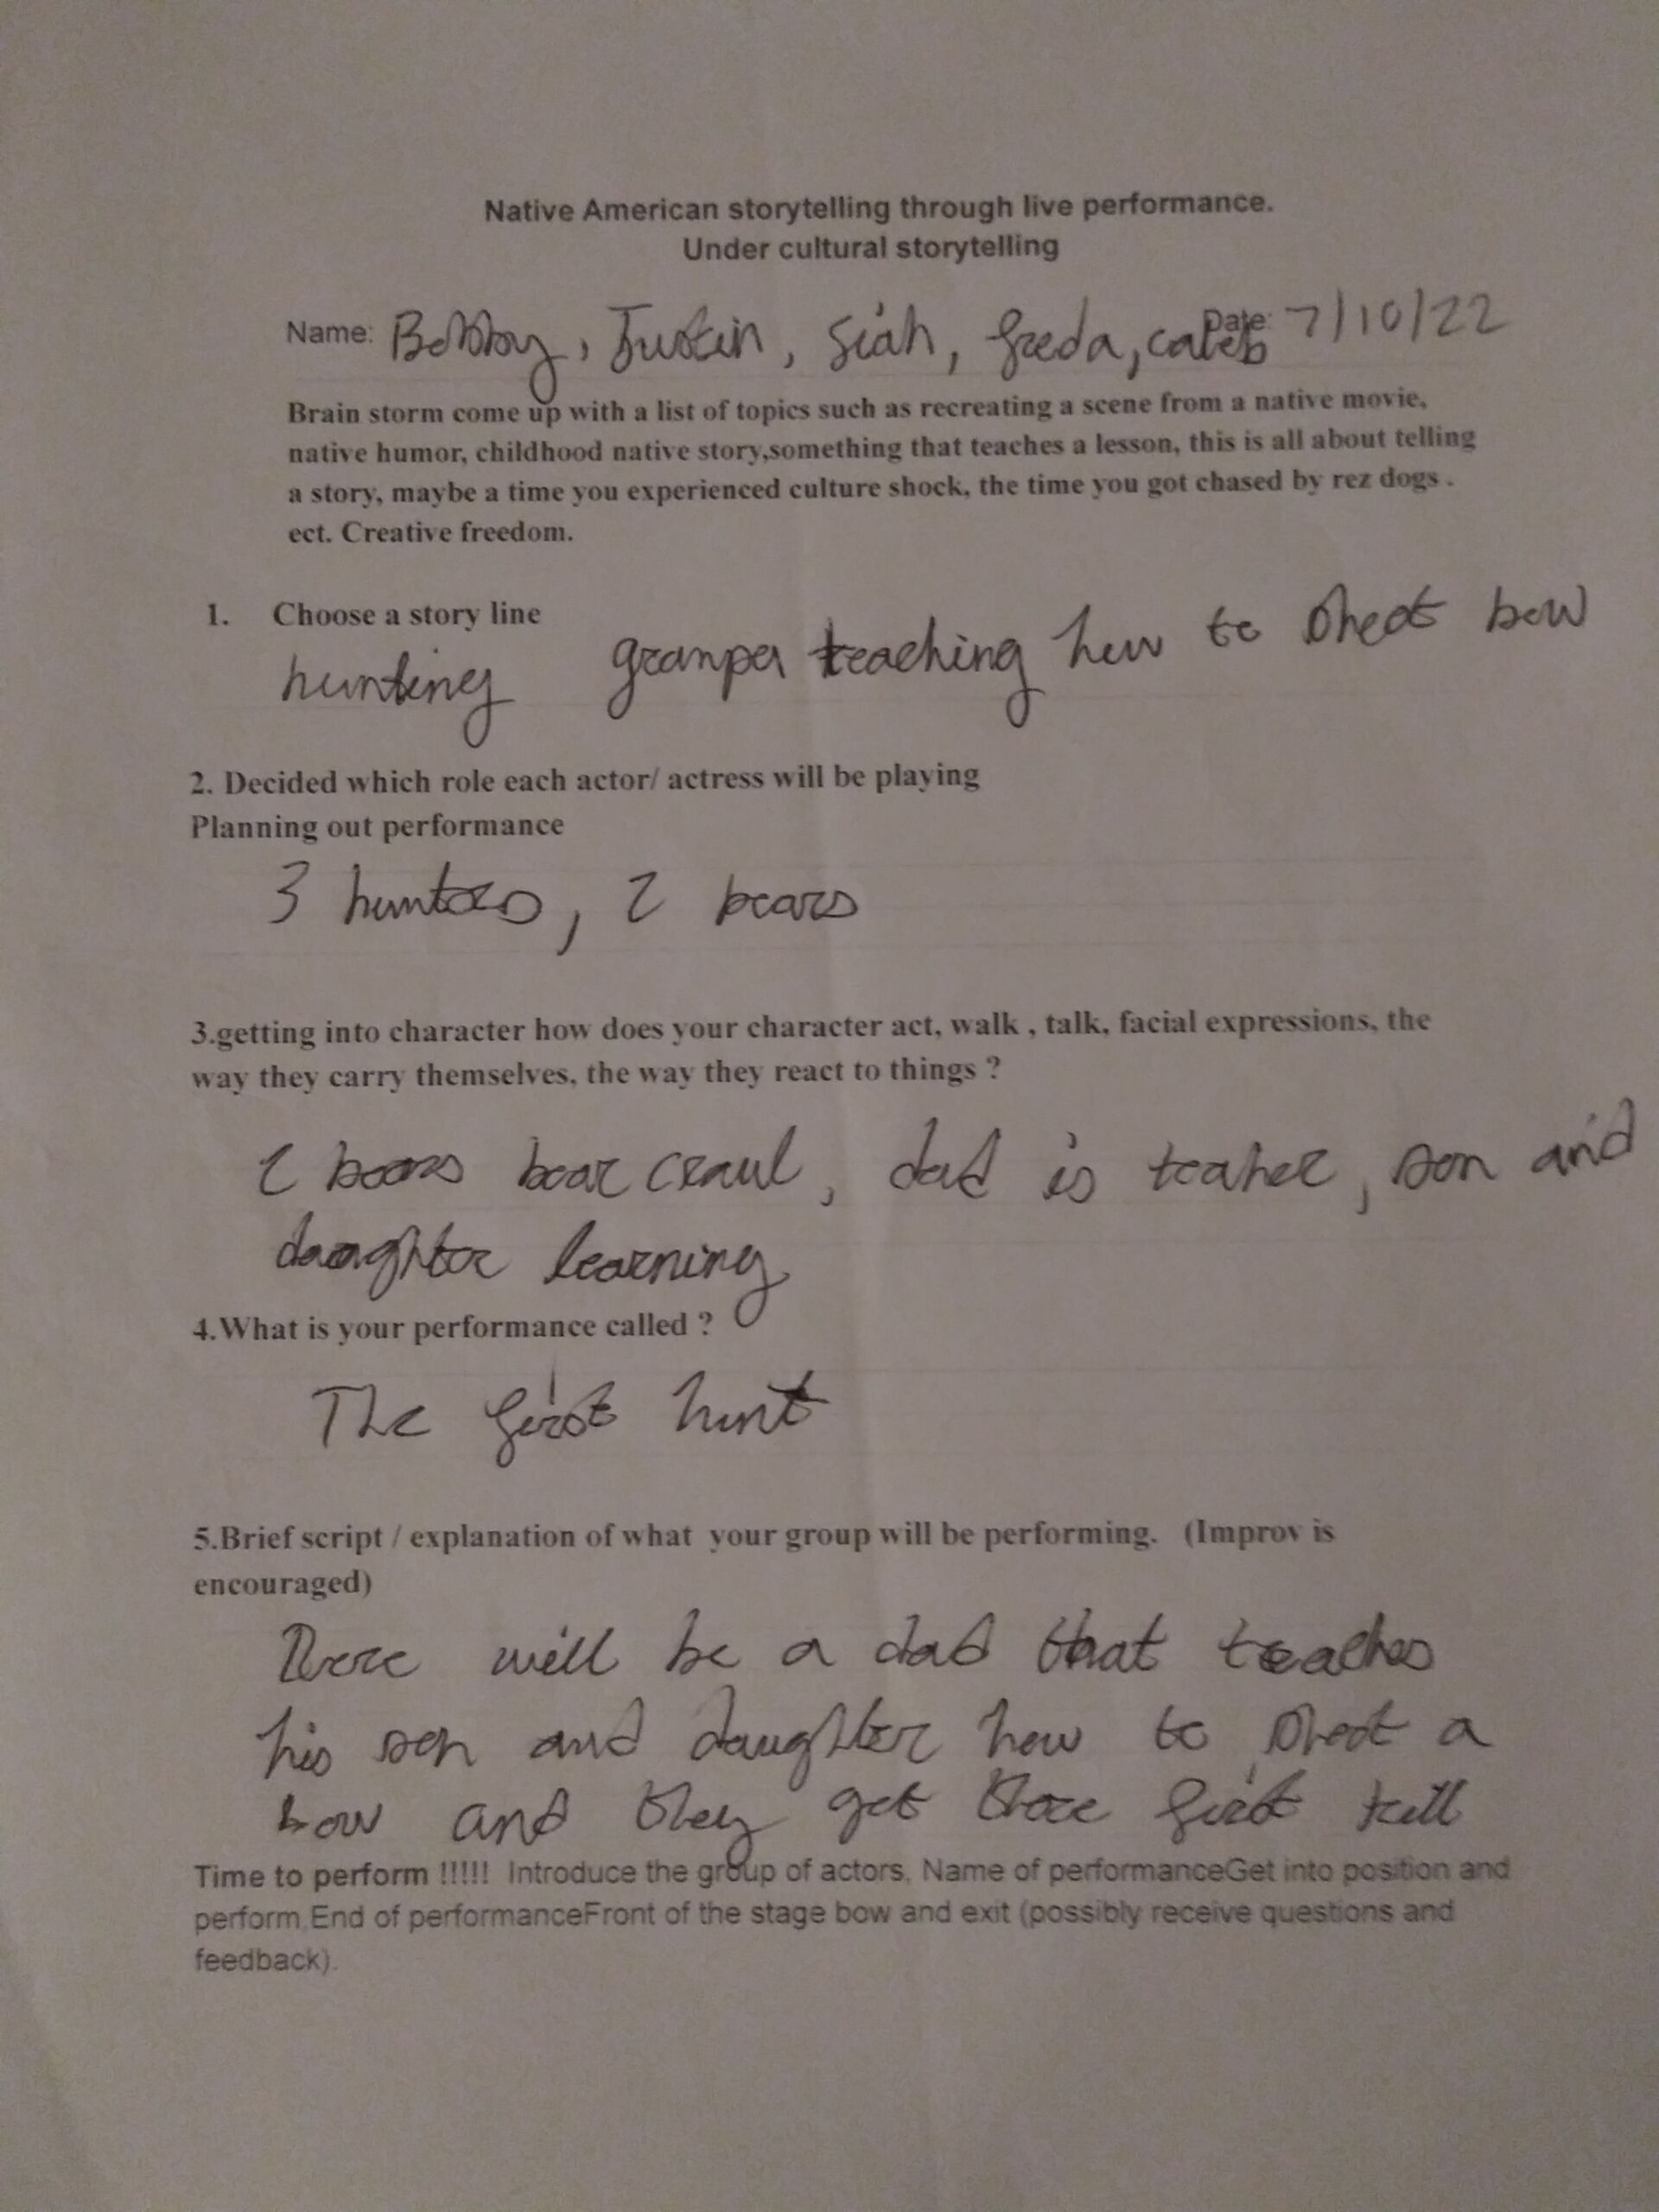 Native American storytelling through live performance.
Under cultural storytelling
Name: Bobby, Justin, Siah, freda, caleb Date: 7/10/22
Brain storm come up with a list of topics such as recreating a scene from a native movie,
native humor, childhood native story,something that teaches a lesson, this is all about telling
a story, maybe a time you experienced culture shock, the time you got chased by rez dogs .
ect. Creative freedom.
1. Choose a story line
hunting granper teaching how to shoot bow
2. Decided which role each actor/ actress will be playing
Planning out performance
3 hunters, 2 bears
3.getting into character how does your character act, walk , talk, facial expressions, the
way they carry themselves, the way they react to things ?
2 bears bear craul, dad is teaher, son and
daughter learning
4.What is your performance called ?
The first hunt
5.Brief script / explanation of what your group will be performing. (Improv is
encouraged)
There will be a dad that teaches
his son and daughter how to shoot a
bow and they get there first kill
Time to perform !!!!! Introduce the group of actors, Name of performanceGet into position and
perform.End of performanceFront of the stage bow and exit (possibly receive questions and
feedback).